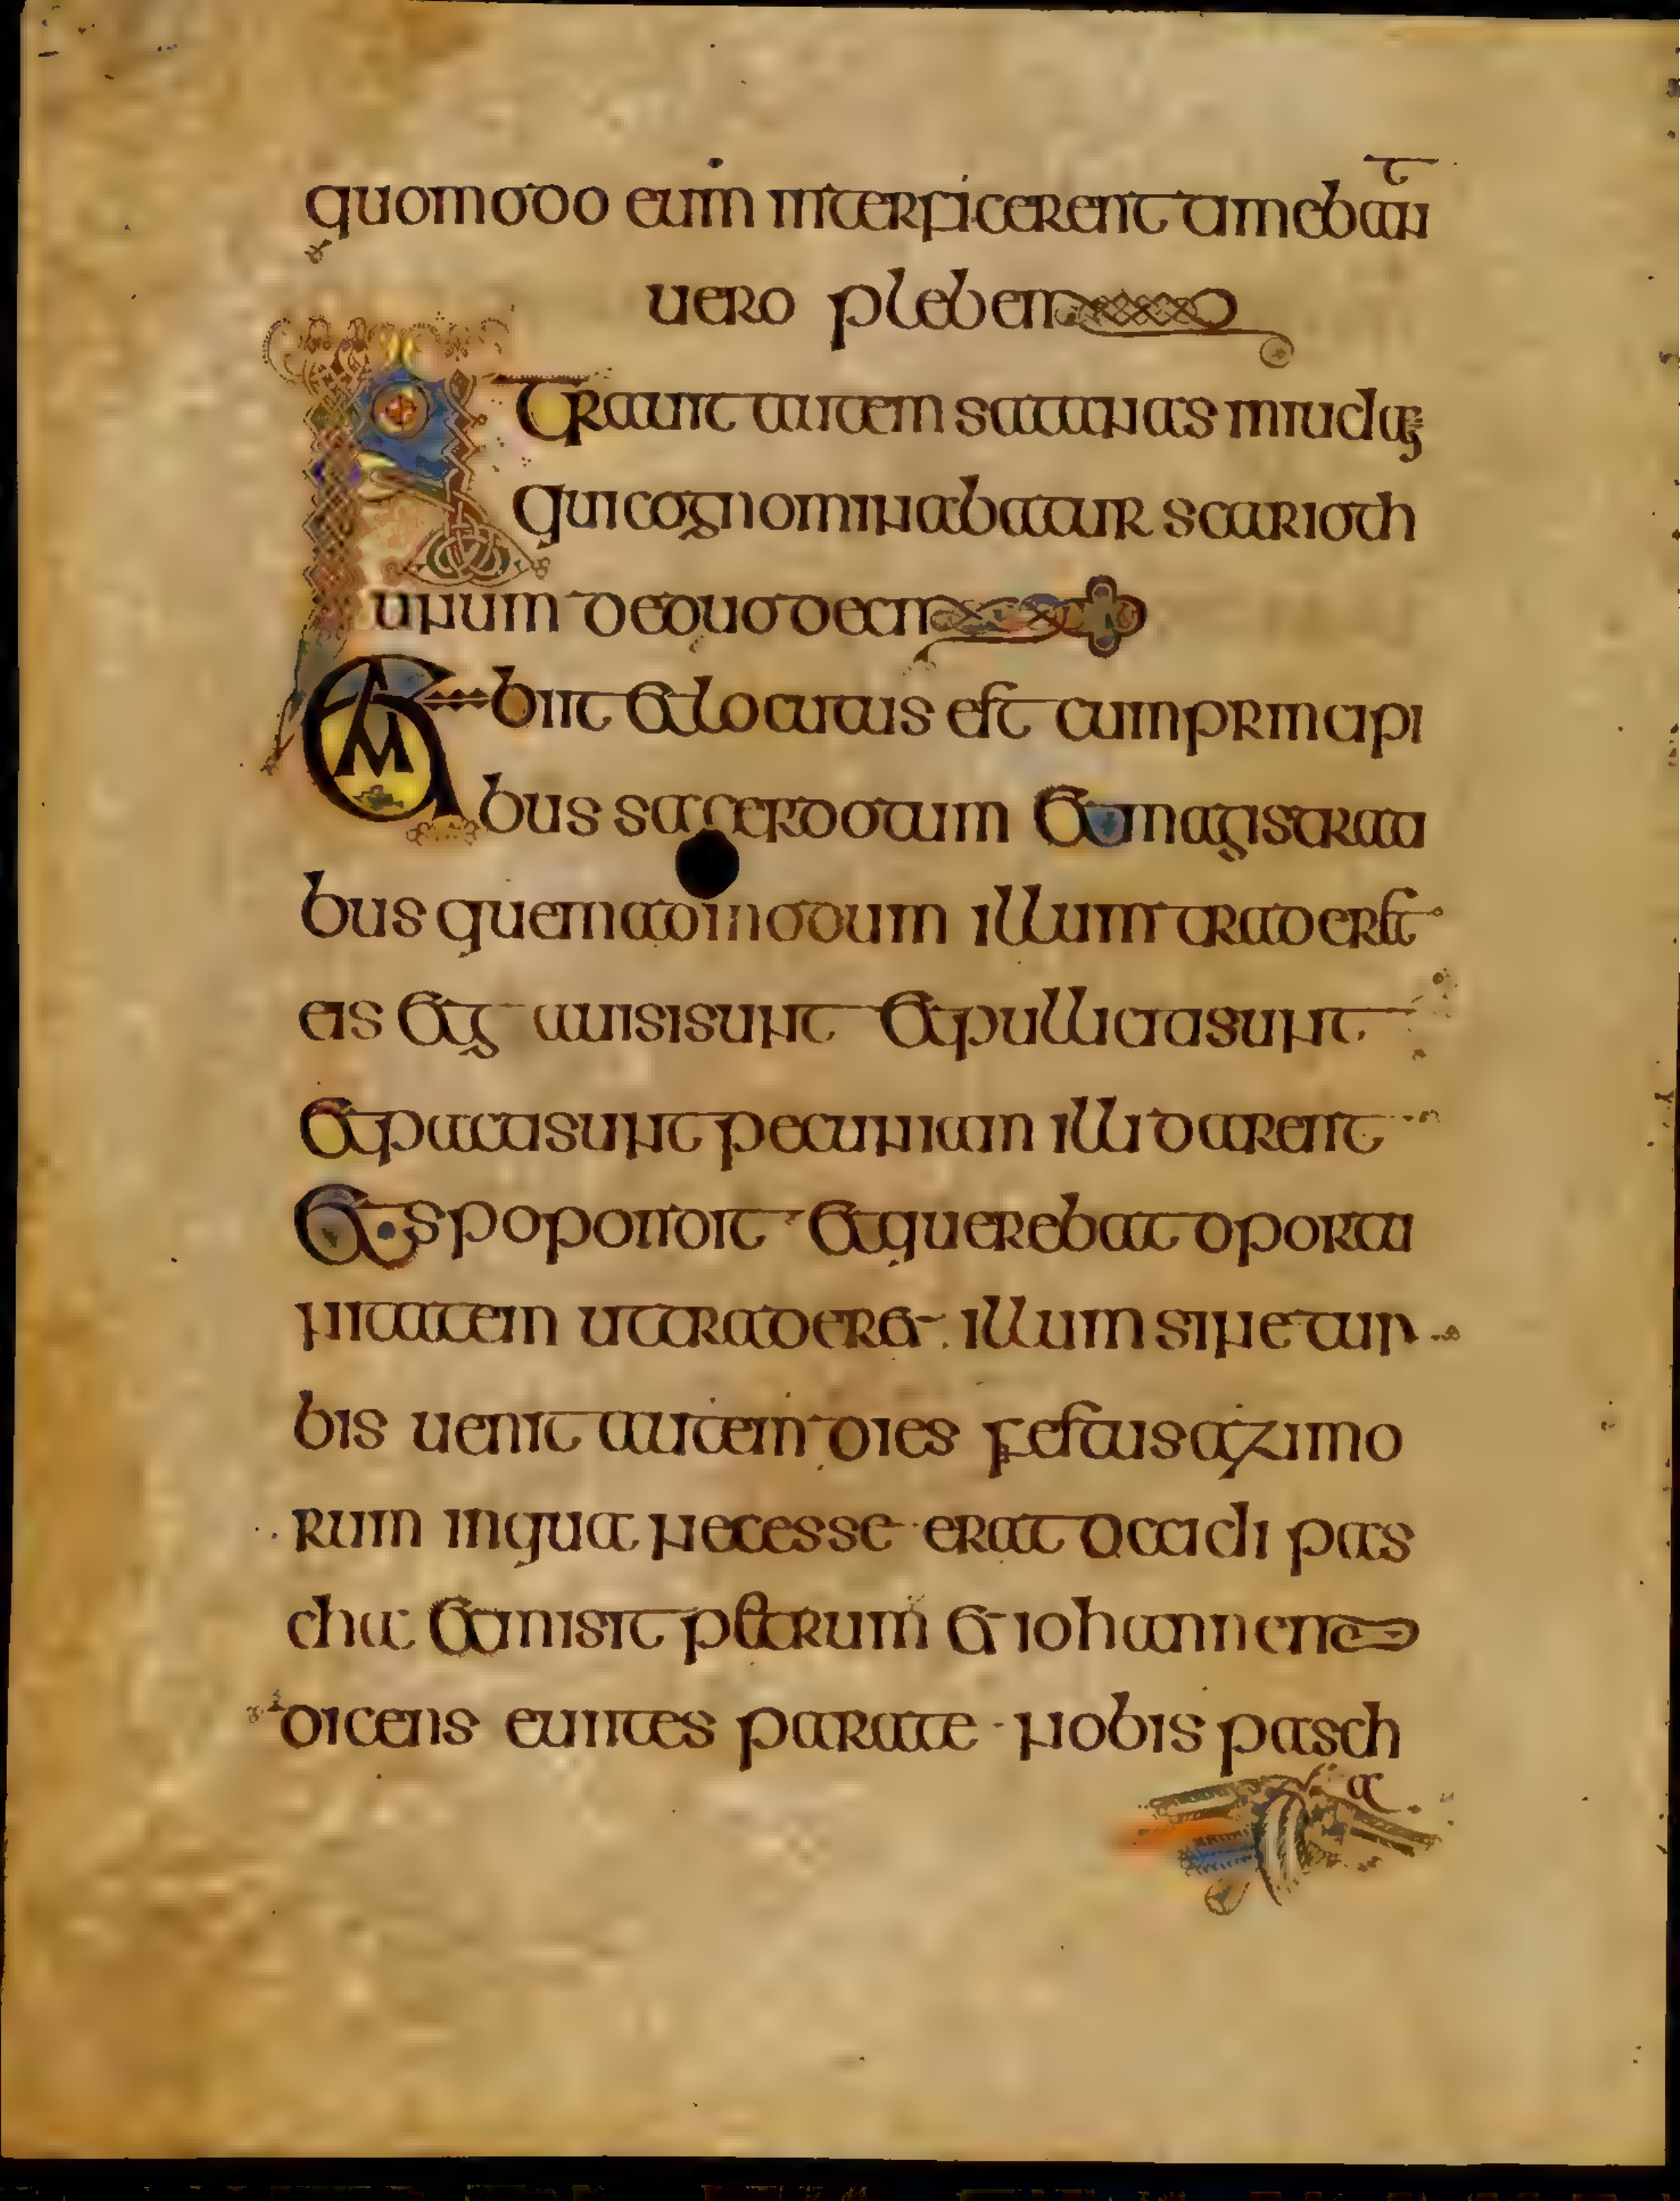 quomodo eum interficerent timebant
uero plebem
Intrauit autem satanas in iudą
qui cognominabatur scarioth
unum de duodecim
Abiit et locutus est cum principi
bus sacerdotum et magistrati
bus quemadmodum illum traderet
eis et gauisi sunt et pulliciti sunt
et pacti sunt pecuniam illi darent
Et spopondit et querebat oportu
nitatem ut traderet illum sine tur
bis uenit autem dies festus azimo
rum in qua necesse erat occidi pas
cha et misit petrum et iohannem
dicens euntes parate nobis pasch
a